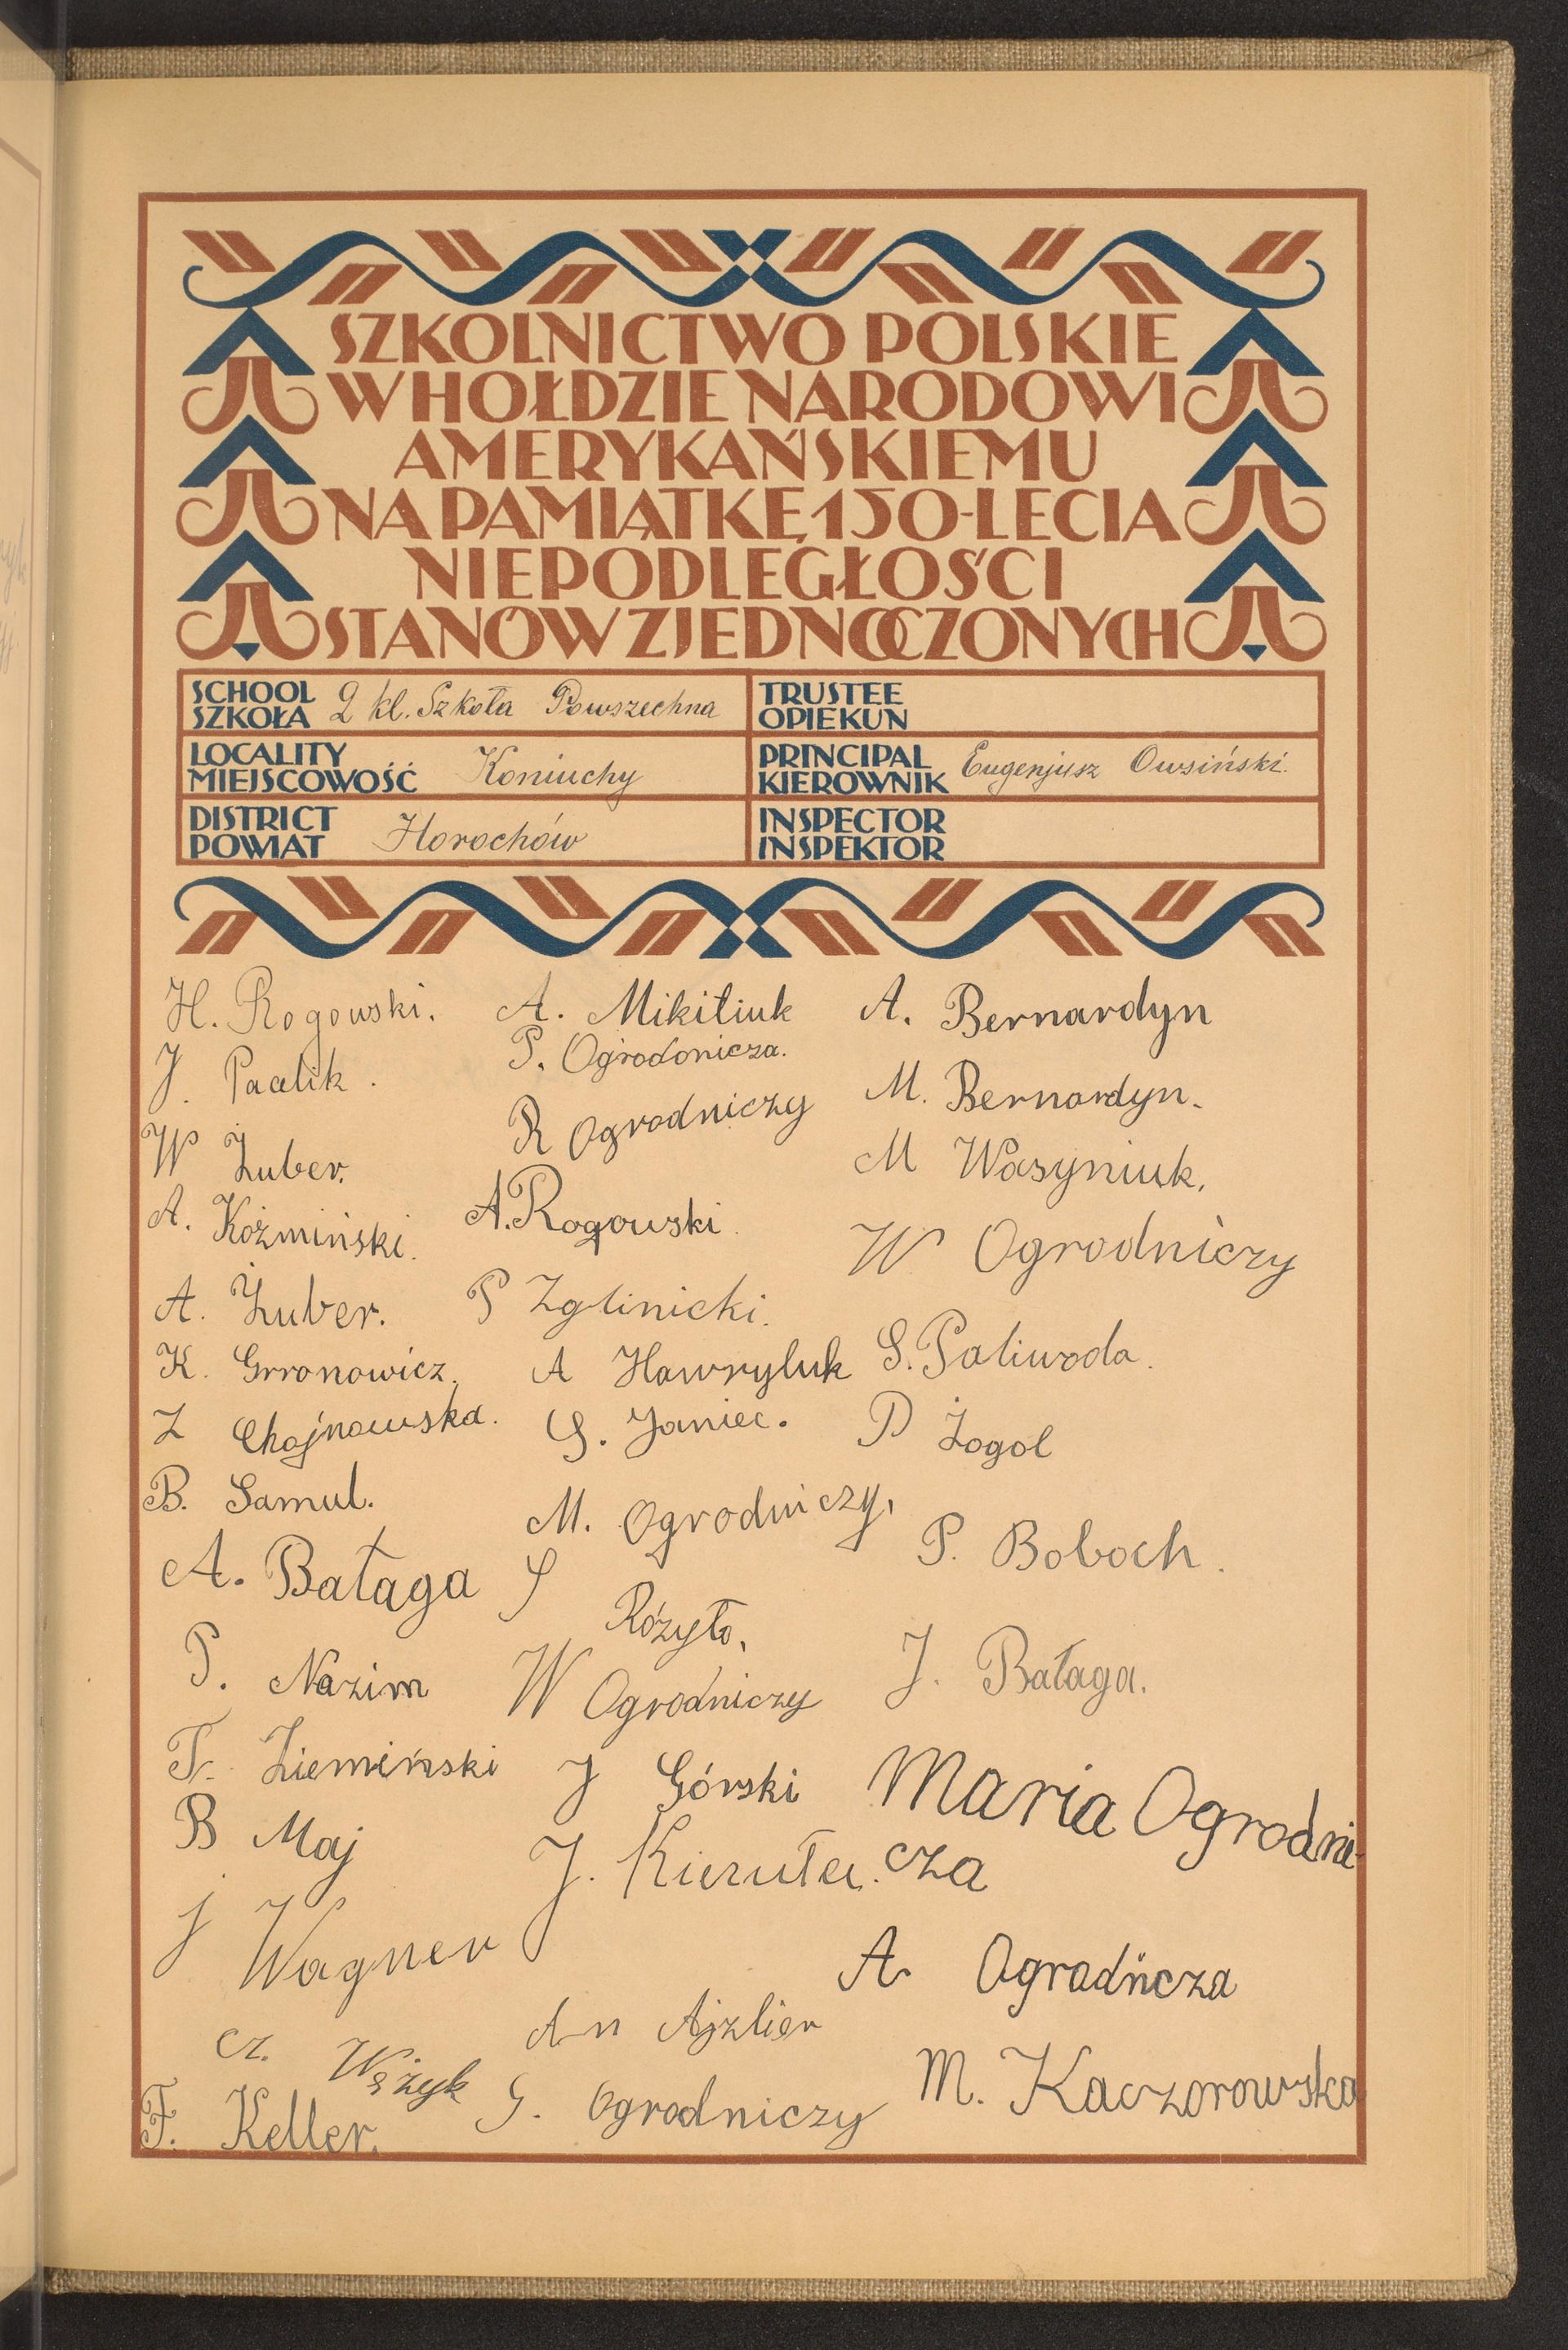 SZKOLNICTWO POLSKIE
W HOŁDZIE NARODOWI
AMERYKAŃSKIEMU
NA PAMIĄTKĘ 150-LECIA
NIEPODLEGŁOŚCI
STANÓW ZJEDNOCZONYCH
SCHOOL
SZKOŁA 2 kl. Szkoła Powszechna
TRUSTEE
OPIEKUN
LOCALITY
MIEJSCOWOŚĆ Koniuchy
PRINCIPAL
KIEROWNIK Eugenjusz Owsiński.
DISTRICT
POWIAT Horochów
INSPECTOR
INSPEKTOR
H. Rogowski.
J. Pacelik.
W Żuber.
A. Koźmiński.
A. Żuber.
K. Grronowicz.
Z Chojnowska.
B. Samul.
A. Bałaga
P. Nazim
T. Ziemiński
B Maj
J Wagner
Cz. Wężyk
F. Keller.
A. Mikitiuk
P. Ogrodonicza.
R Ogrodniczy
A. Rogowski.
P Zglinicki.
A Hawryluk
S. Janiec.
M. Ogrodniczy,
S Różyło,
W Ogrodniczy
J Górski
J. Kierułu.
An Ajzlier
G. Ogrodniczy
A. Bernardyn
M. Bernardyn.
M Wasyniuk.
W Ogrodniczy
S. Paliwoda.
P Żogol
P. Boboch.
J. Bałaga.
Maria Ogrodni-
cza
A Ogradńcza
M. Kaczorowska